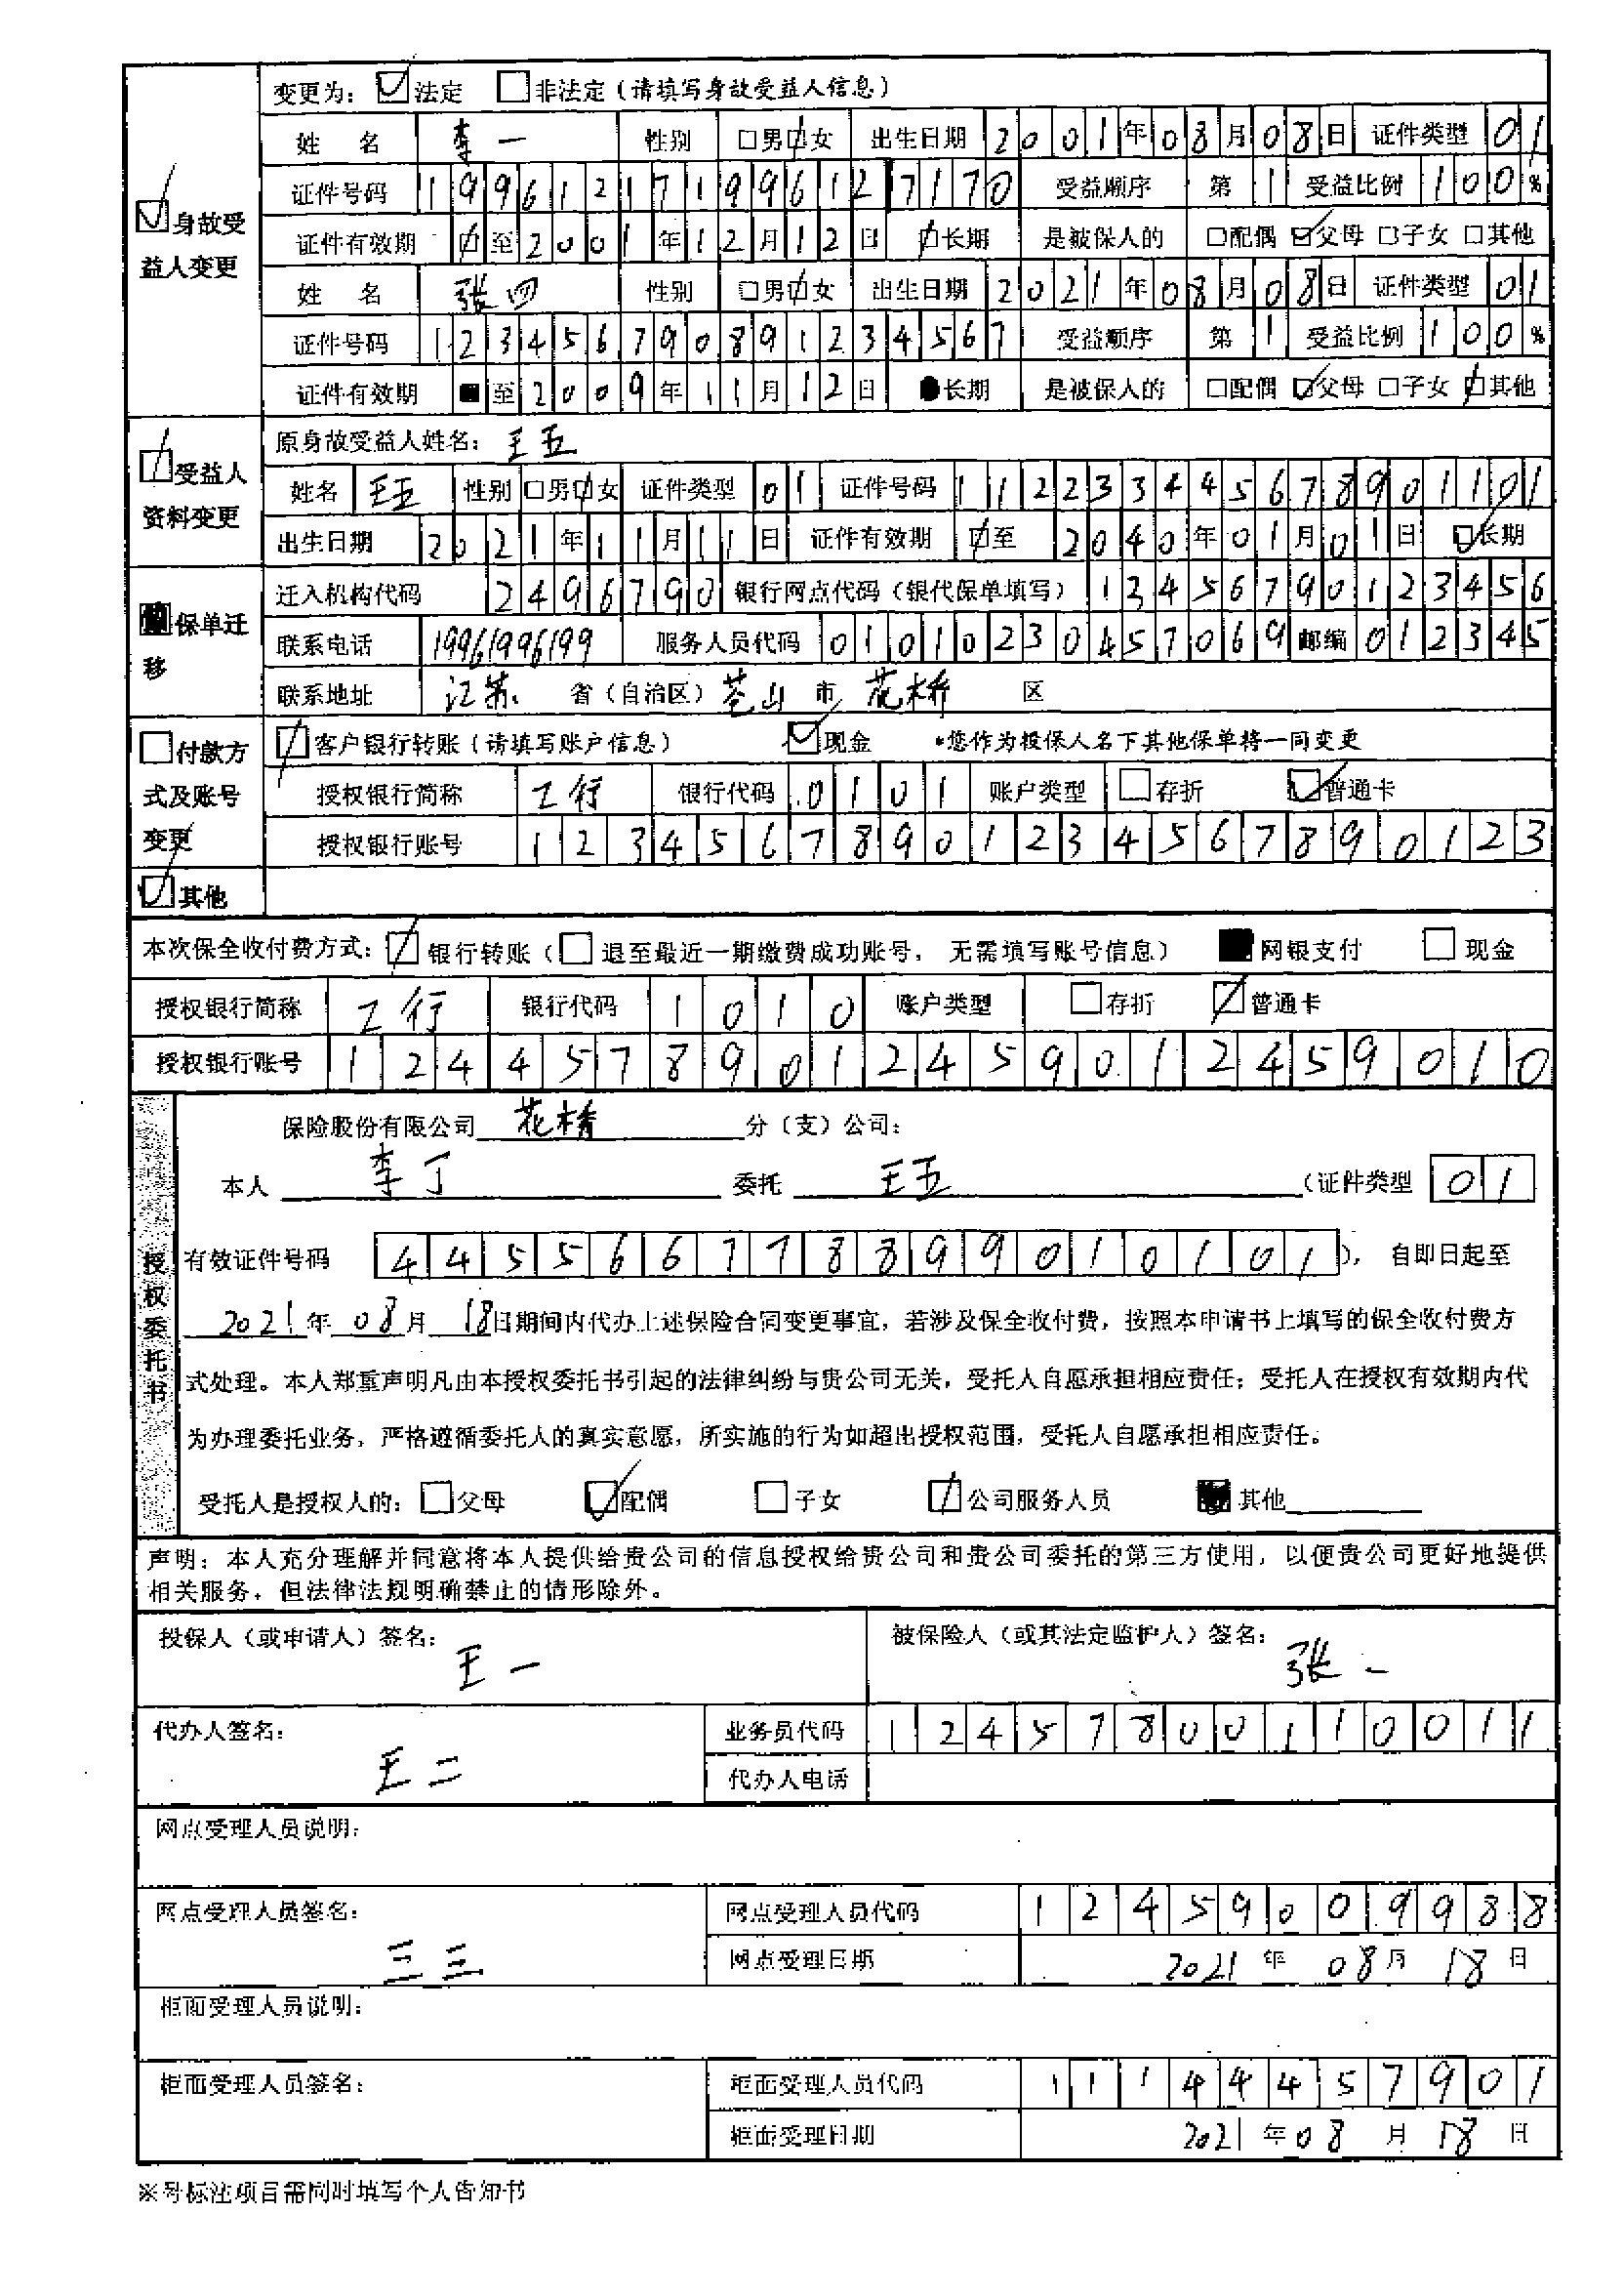 变更为： ☑法定 □非法定（请填写身故受益人信息）
☑身故受益人变更
姓 名 李一 性别 □男☑女 出生日期 2001年08月08日 证件类型 01
证件号码 199612171996127170 受益顺序 第1 受益比例 100%
证件有效期 ☑至2001年12月12日 ☑长期 是被保人的 □配偶☑父母□子女□其他
姓 名 张四 性别 □男☑女 出生日期 2021年08月08日 证件类型 01
证件号码 123456790891234567 受益顺序 第1 受益比例 100%
证件有效期 ■至2009年11月12日 ●长期 是被保人的 □配偶☑父母□子女☑其他
☑受益人资料变更
原身故受益人姓名： 王五
姓名 王五 性别 □男☑女 证件类型 01 证件号码 112233445678901101
出生日期 2021年11月11日 证件有效期 ☑至 2040年01月01日 ☑长期
■保单迁移
迁入机构代码 2496790 银行网点代码（银代保单填写） 13456790123456
联系电话 19961996199 服务人员代码 01010230457069 邮编 012345
联系地址 江苏 省（自治区） 市 花桥 区
□付款方式及账号变更
☑客户银行转账（请填写账户信息） ☑现金 *您作为投保人名下其他保单将一同变更
授权银行简称 工行 银行代码 0101 账户类型 □存折 ☑普通卡
授权银行账号 12345678901234567890123
☑其他
本次保全收付费方式： ☑银行转账（□退至最近一期缴费成功账号， 无需填写账号信息） ■网银支付 □现金
授权银行简称 工行 银行代码 1010 账户类型 □存折 ☑普通卡
授权银行账号 12445789012459012459010
授权委托书
保险股份有限公司 花桥 分（支）公司：
本人 李丁 委托 王五 （证件类型 01
有效证件号码 445566778899010101 ）， 自即日起至
2021年08月18日期间内代办上述保险合同变更事宜，若涉及保全收付费，按照本申请书上填写的保全收付费方
式处理。本人郑重声明凡由本授权委托书引起的法律纠纷与贵公司无关，受托人自愿承担相应责任；受托人在授权有效期内代
为办理委托业务，严格遵循委托人的真实意愿，所实施的行为如超出授权范围，受托人自愿承担相应责任。
受托人是授权人的： □父母 ☑配偶 □子女 ☑公司服务人员 ■其他
声明：本人充分理解并同意将本人提供给贵公司的信息授权给贵公司和贵公司委托的第三方使用，以便贵公司更好地提供
相关服务，但法律法规明确禁止的情形除外。
投保人（或申请人）签名： 王一 被保险人（或其法定监护人）签名： 张一
代办人签名： 王二 业务员代码 12457800110011
代办人电话
网点受理人员说明：
网点受理人员签名： 三三 网点受理人员代码 12459009988
网点受理日期 2021年08月18日
柜面受理人员说明：
柜面受理人员签名： 柜面受理人员代码 11144457901
柜面受理日期 2021年08月18日
※号标注项目需同时填写个人告知书